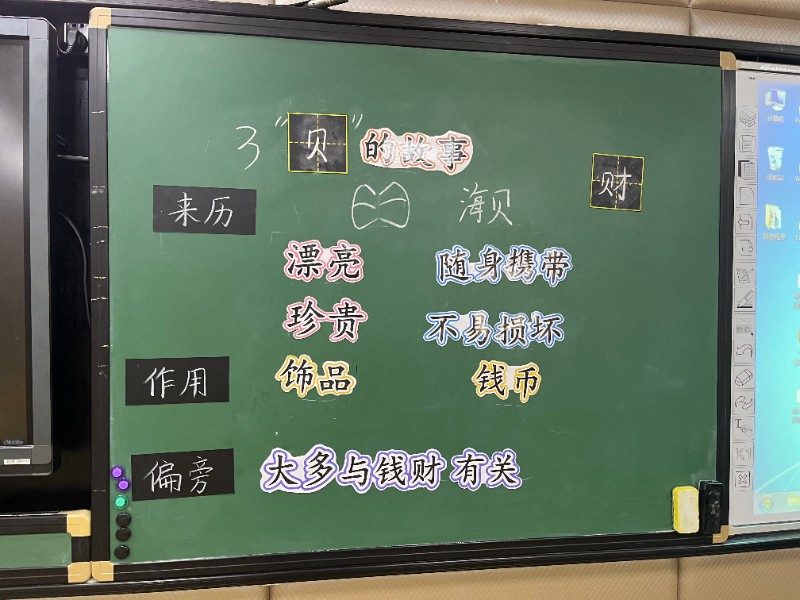 3 "贝"的故事
财
来历 海贝
漂亮 随身携带
珍贵 不易损坏
作用 饰品 钱币
偏旁 大多与钱财 有关